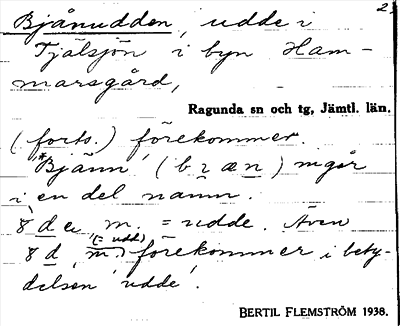 2.
Bjånudden, udde i
Tjälsjön i byn Ham-
marsgård,
Ragunda sn och tg, Jämtl. län.
(forts.) förekommer.
*Bjänn, (b ɩ æ n) ingår
i en del namn.
m. = udde. Även
(= udd)
förekommer i bety-
delsen 'udde'.
BERTIL FLEMSTRÖM 1938.